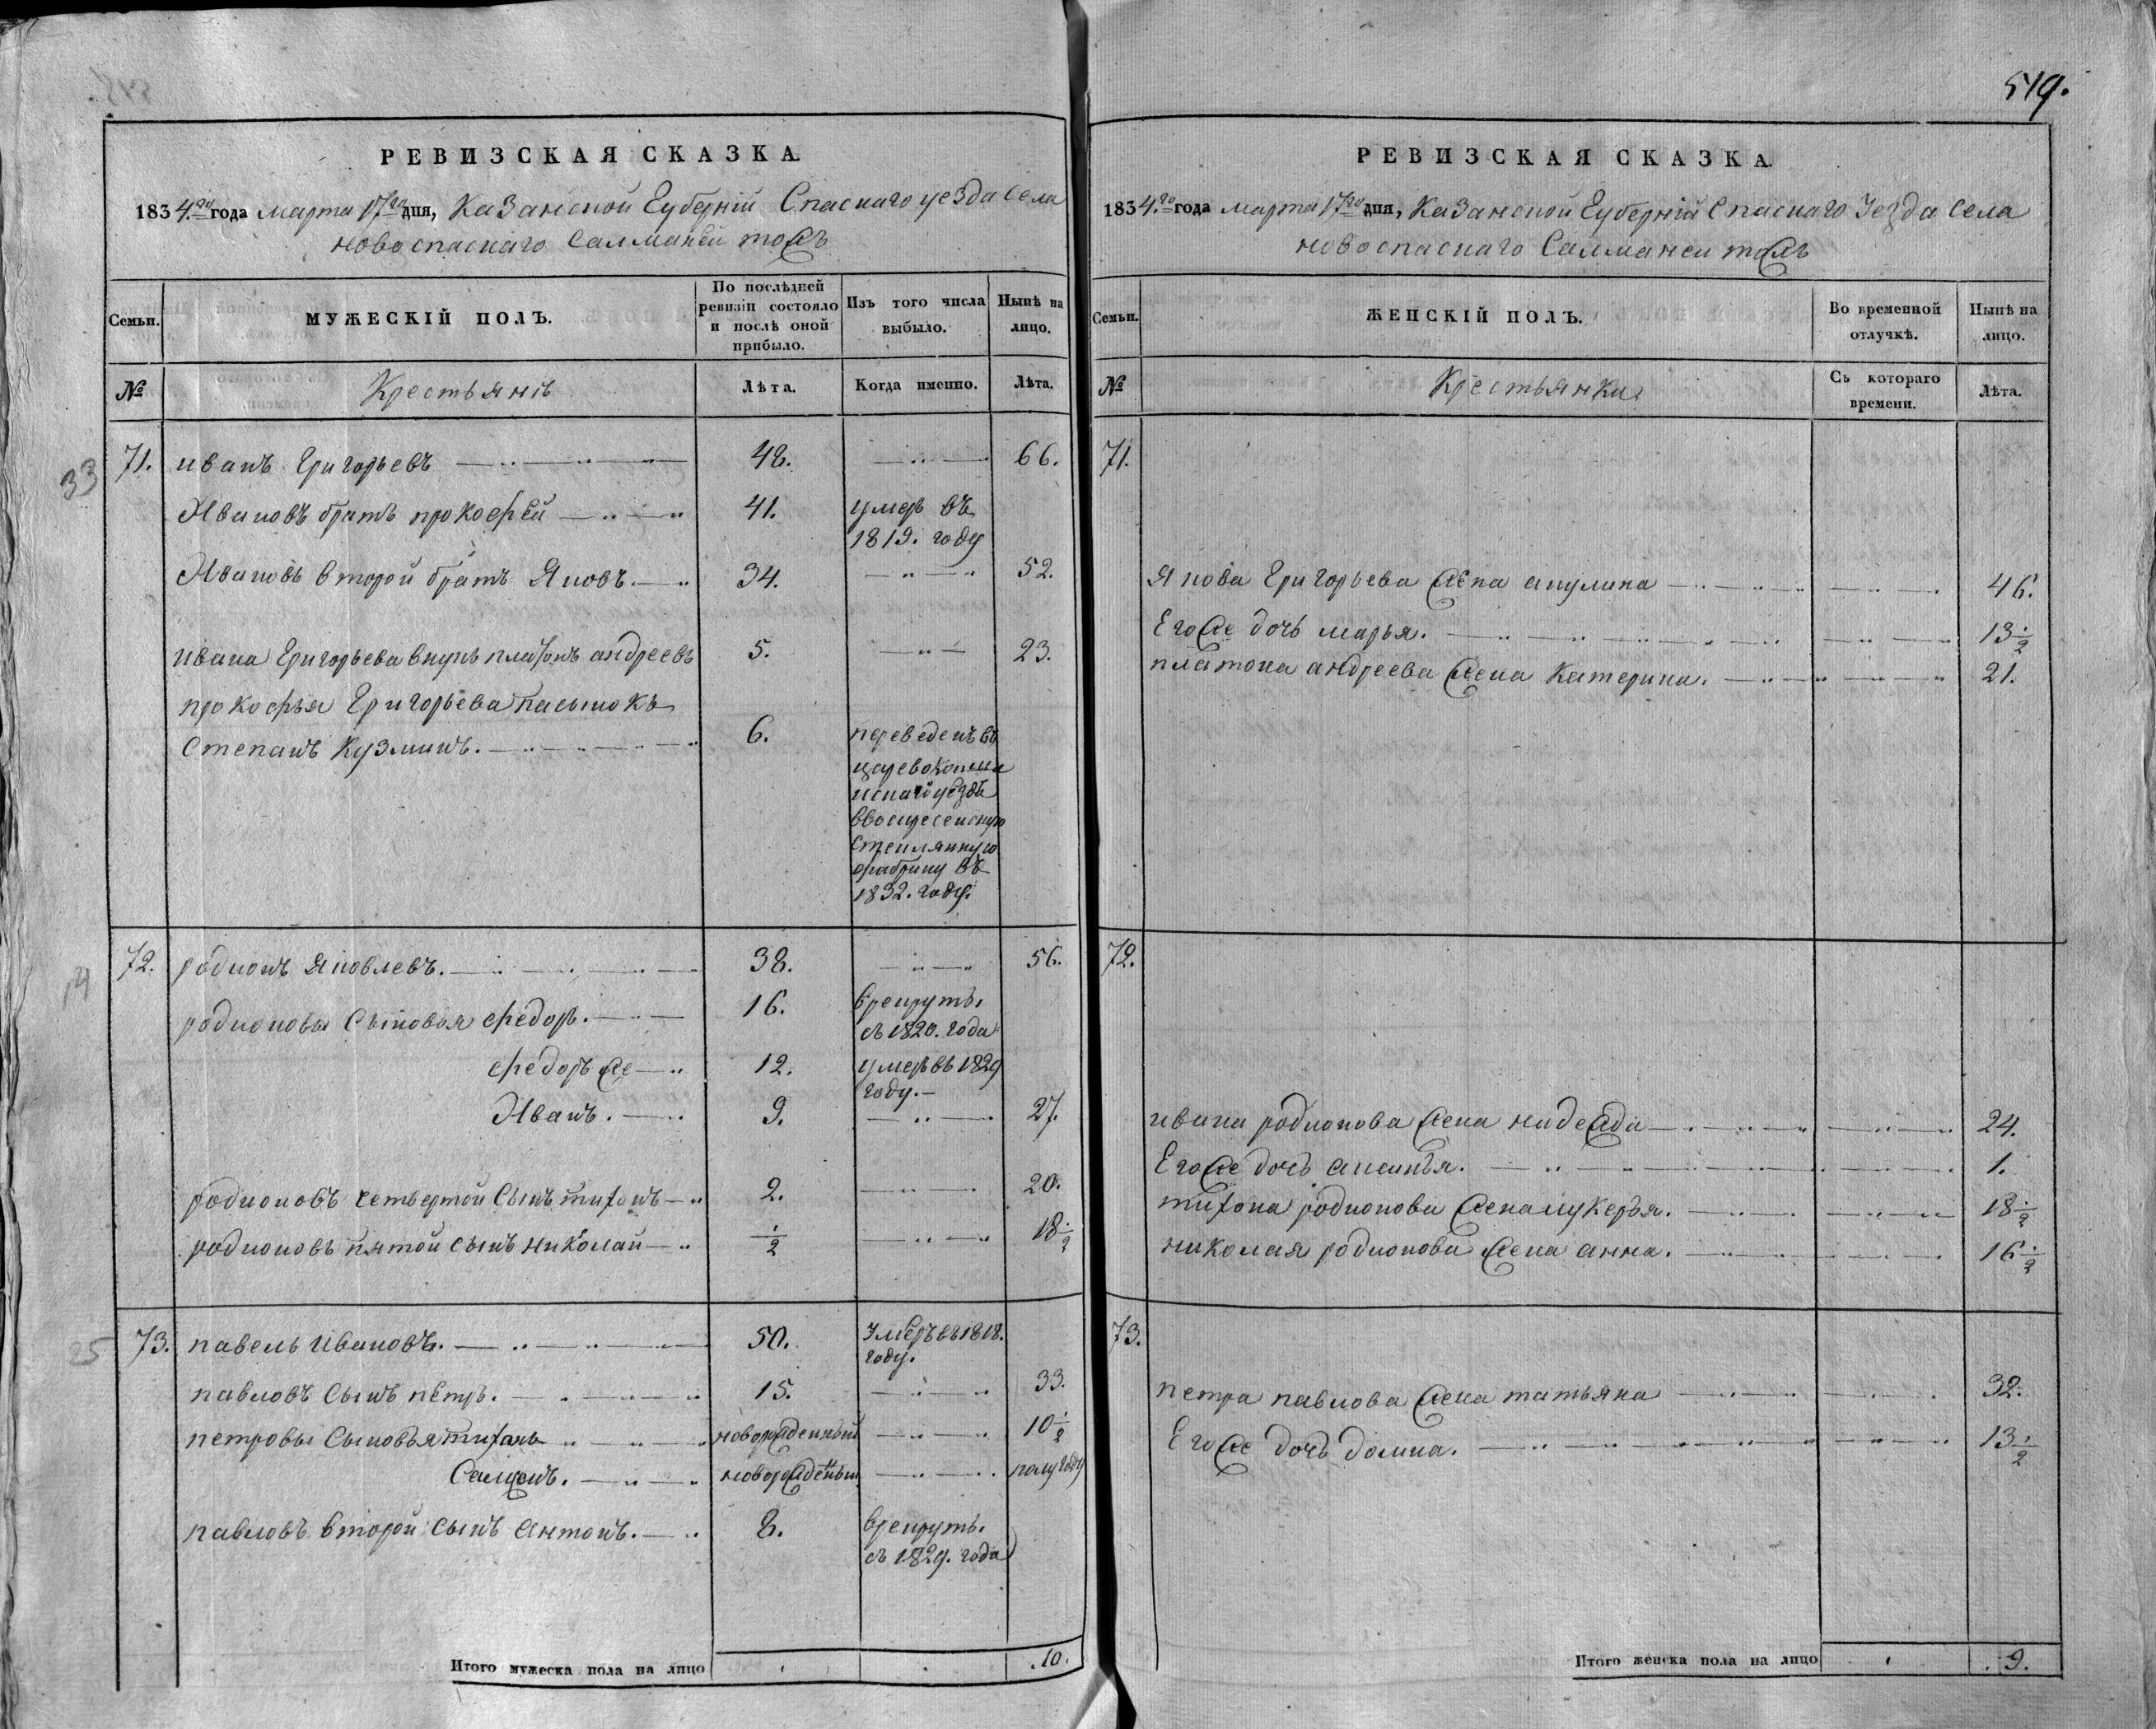 519.
РЕВИЗСКАЯ СКАЗКА.
1834.го года марта 17го дня, Казанской Губерній Спаскаго уезда села
новоспаскаго Салманы тожъ
Семьи.
МУЖЕСКІЙ ПОЛЪ.
По послѣдней ревизіи состояло и послѣ оной прибыло.
Изъ того числа выбыло.
Нынѣ на лицо.
№
Крестьянѣ
Лѣта.
Когда именно.
Лѣта.
33
71. иванъ Григорьевъ 48. 66.
Ивановъ братъ прокофей 41. умеръ въ
1819. году
Ивановъ второй братъ Яковъ. 34. 52.
ивана Григорьева внукъ платонъ андреевъ 5. 23.
прокофья Григорьева пасынокъ
Степанъ Кузминъ. 6. переведенъ въ
царевококша
искаго уѣзда
ввоскресенскую
стеклянную
фабрику въ
1832. году.
72. родионъ Яковлевъ. 38. 56.
родионовы Сыновья федоръ. 16. врекруты
съ 1820. года
федоръ же 12. умеръ въ 1829
году.
Иванъ. 9. 27.
родионовъ четвертой Сынъ тихонъ 2. 20.
родионовъ пятой сынъ николай 1/2 18 1/2
25
73. павелъ ивановъ. 50. Умеръ въ 1818.
году.
павловъ Сынъ петръ. 15. 33.
петровы Сыновья тихонъ новорожденный 10 1/2
новорожденный полугоду
павловъ второй Сынъ Антонъ. 8. врекруты.
съ 1829. года
Итого мужеска пола на лицо .10.
РЕВИЗСКАЯ СКАЗКА.
1834.го года марта 17го дня, Казанской Губерній Спаскаго Уезда Села
новоспаскаго Салманы тожъ
Семьи.
ЖЕНСКІЙ ПОЛЪ.
Во временной отлучкѣ.
Нынѣ на лицо.
№
Крестьянки
Съ котораго времени.
Лѣта.
71.
Якова Григорьева жена акулина 46.
Его же дочь марья. 13 1/2
платона андреева жена Катерина. 21.
72.
ивана родионова жена надежда 24.
Его же дочь аксинья. 1.
тихона родионова жена лукерья. 18 1/2
николая родионова жена анна. 16 1/2
73.
петра павлова жена татьяна 32.
Его же дочь домна. 13 1/2
Итого женска пола на лицо .9.